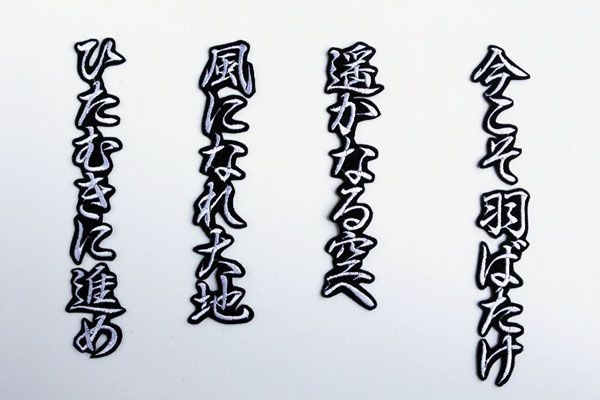 今こそ羽ばたけ
遥かなる空へ
風になれ大地
ひたむきに進め